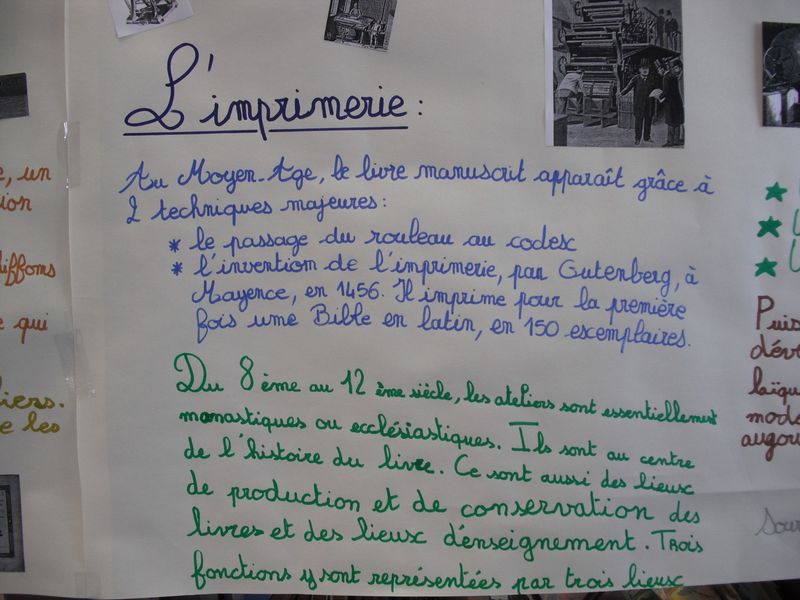 L'imprimerie :
Au Moyen-Age, le livre manuscrit apparaît grâce à
2 techniques majeures :
* le passage du rouleau au codex
* l'invention de l'imprimerie, par Gutenberg, à
Mayence, en 1456. Il imprime pour la première
fois une Bible en latin, en 150 exemplaires.
Du 8 ème au 12 ème siècle, les ateliers sont essentiellement
monastiques ou ecclésiastiques. Ils sont au centre
de l'histoire du livre. Ce sont aussi des lieux
de production et de conservation des
livres et des lieux d'enseignement. Trois
fonctions y sont représentées par trois lieux
un
qui
le les
Puis